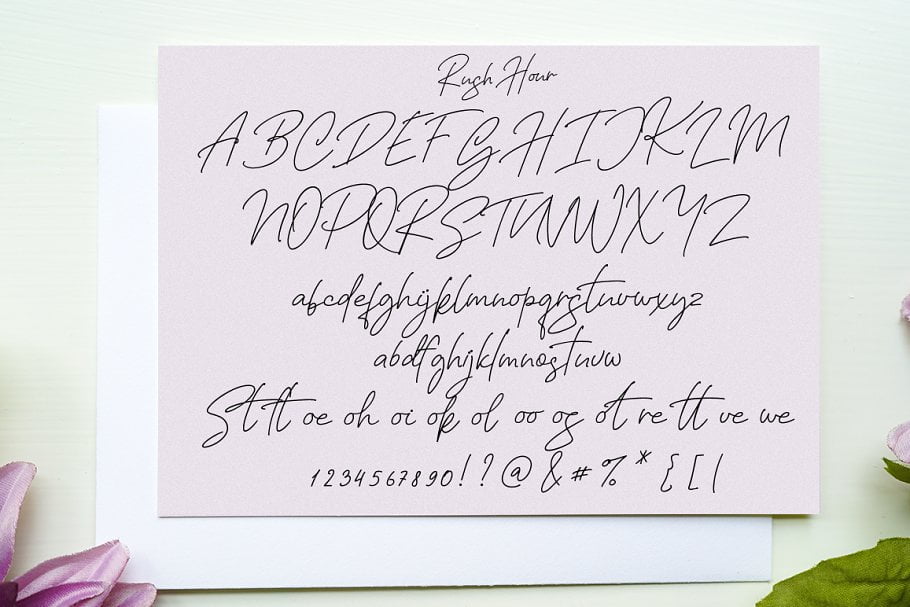 Rush Hour
ABCDEFGHIJKLM
NOPQRSTUVWXYZ
abcdefghijklmnopqrstuvwxyz
abdfghijklmnostuvw
St ft oe oh oi ok ol oo os ot re tt ve we
1234567890!?@&#%*{[|